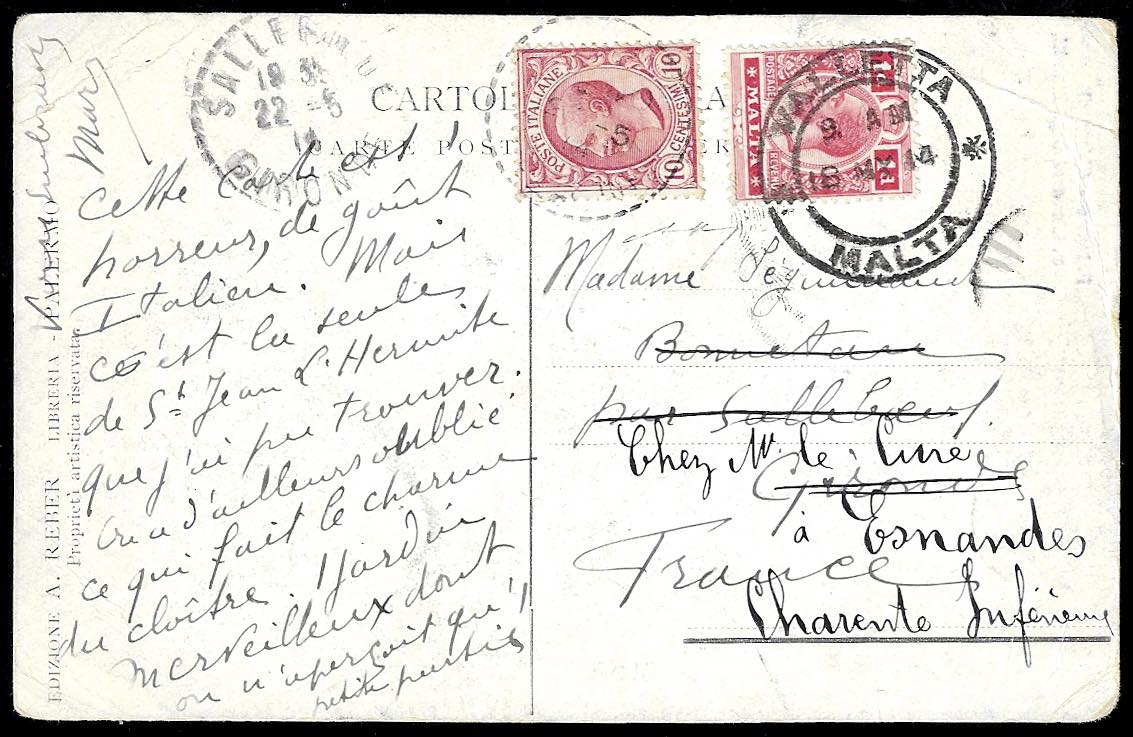 CARTOLINA
CARTE POST
POSTE ITALIANE
10 CENTESIMI 10
POSTAGE
MALTA
REVENUE
1d
1d
VALLETTA
9 AM
MALTA
SALLEBŒUF
22 - 5
14
GIRONDE
Cette carte est 1
horreur, de goût
Italien. Mais
c'est la seule
de St Jean L'Hermite
que j'ai pu trouver.
On a d'ailleurs oublié
ce qui fait le charme
du cloître. Jardin
merveilleux dont
on n'aperçoit qu'1
petite partie
Madame
Bonnetan
par Sallebœuf
Gironde
France
Chez Mr. le Curé
à Esnandes
Charente Inférieure
EDIZIONE A. REBER LIBRERIA - PALERMO
Proprietà artistica riservata.